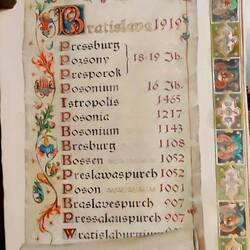 Bratislava 1919
Pressburg
Pozsony 18-19 Jh.
Presporok
Posonium 16 Jh.
Istropolis 1465
Posonia 1217
Bosonium 1143
Bresburg 1108
Bossen 1052
Preslawaspurch 1052
Poson 1001
Braslavespurch 907
Pressalauspurch 907
Wratislaburgium